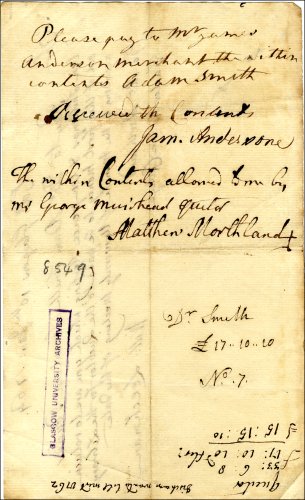 Please pay to Mr James
Anderson merchant the within
contents Adam Smith
Received th Contents
Jam. Andersone
The within Contents allowed to me by
Mr George Muirhead
Matthew Morthland
8549
GLASGOW UNIVERSITY ARCHIVES
Dr Smith
£ 17-10-10
No. 7.
£ 15:15:10
17:10:10
£33:6:8
1762